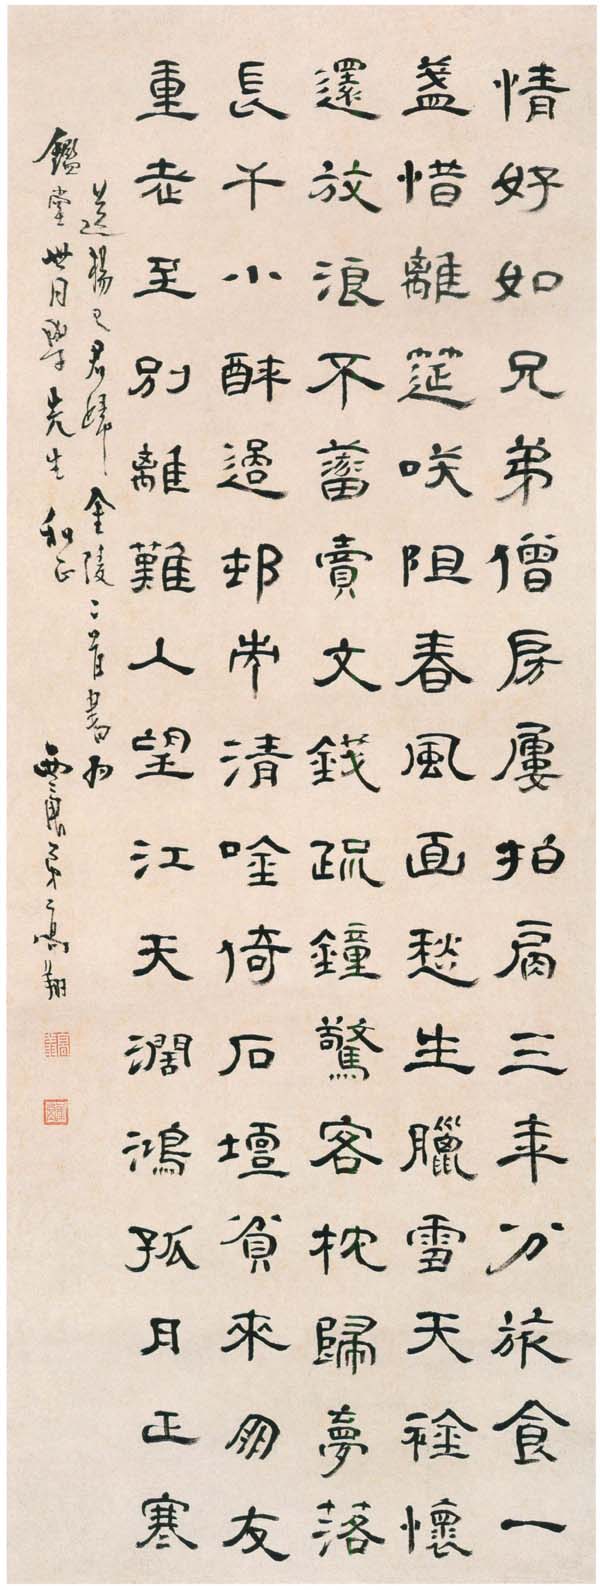 情好如兄弟僧房屢拍肩三年分旅食一
盞惜離筵咲阻春風面愁生臘雪天襟懷
還放浪不蓄賣文錢疏鐘驚客枕歸夢落
長干小醉過邨市清唫倚石壇貧來朋友
重老至別離難人望江天濶鴻孤月正寒
送楊已君歸金陵二首書為
鑑堂世同學先生和正 西唐弟高翔